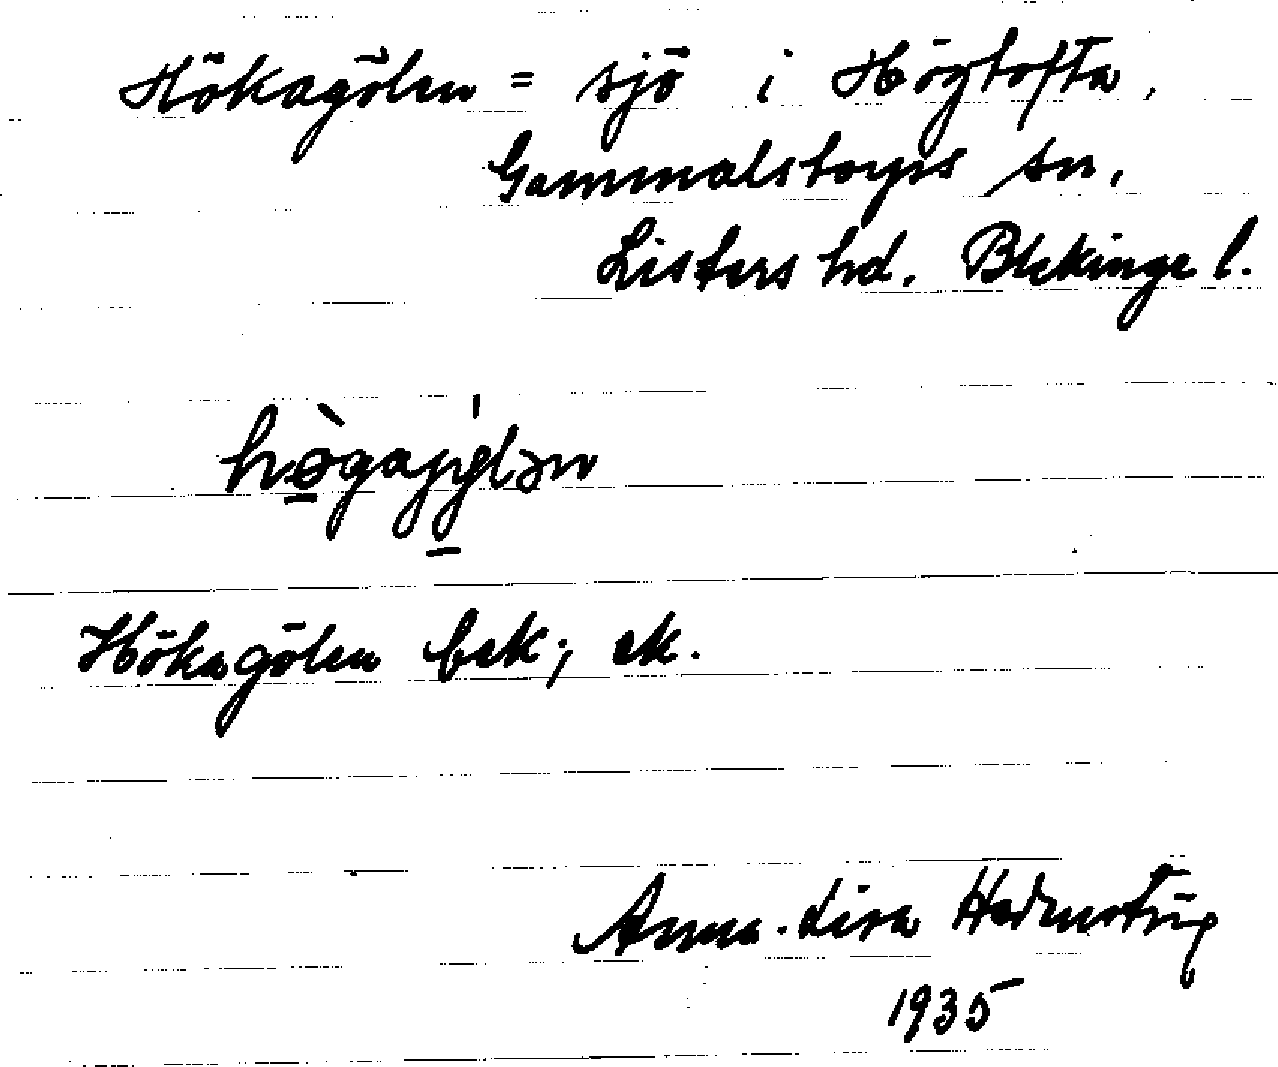 Hökagölen = sjö i Högtofta,
Gammalstorps sn,
Listers hd. Blekinge l.
hø̀gajølən
Hökagölen bek; ek.
Anna-Lisa
1935